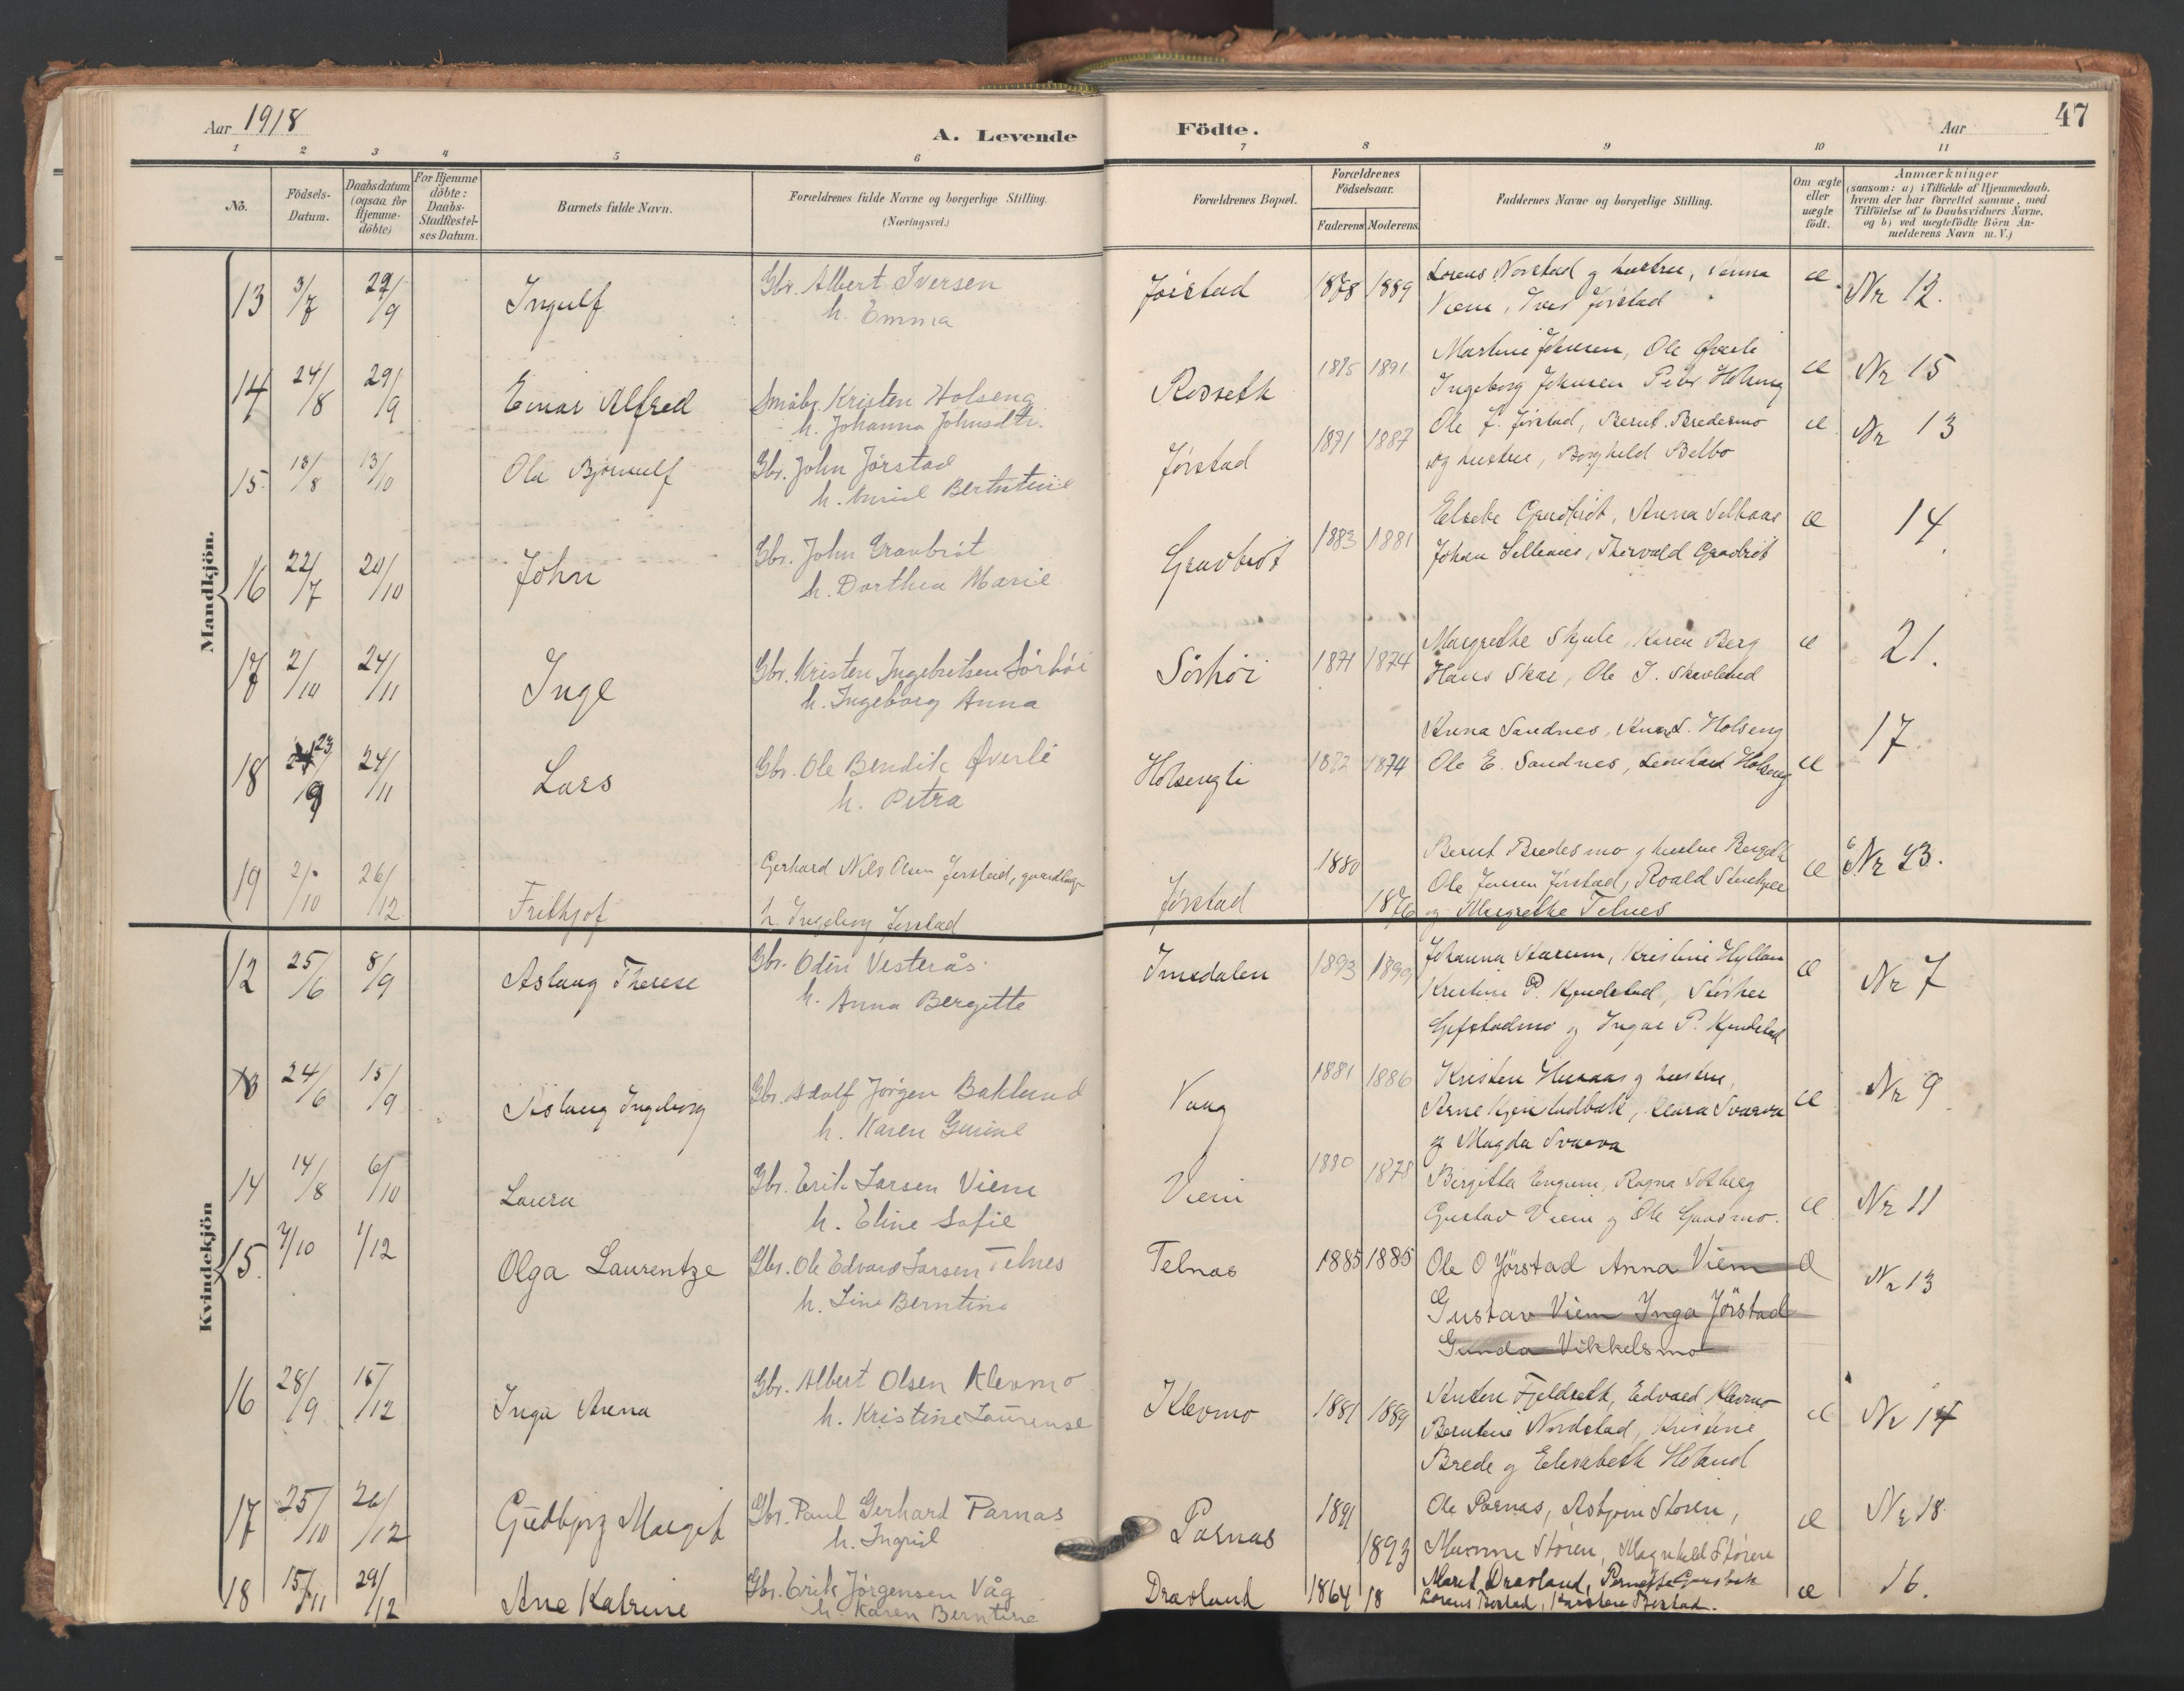 47
Aar 1918
A. Levende
Födte.
Aar
1 2 3 4 5 6 7 8 9 10 11
No.
Födsels-
Datum.
Daabsdatum
(ogsaa for
Hjemme-
döbte)
For Hjemme
döbte:
Daabs-
Stadfæstel-
ses Datum.
Barnets fulde Navn.
Forældrenes fulde Navne og borgerlige Stilling.
(Næringsvei.)
Forældrenes Bopæl.
Forældrenes
Födselsaar.
Faderens Moderens
Faddernes Navne og borgerlige Stilling.
Om ægte
eller
uægte
födt.
Anmærkninger
(saasom: a) i Tilfælde af Hjemmedaab.
hvem der har forrettet samme, med
Tilföielse af to Daabsvidners Navne.
og b) ved uægtefödte Börn An-
melderens Navn m. V.)
Mandkjön.
13 3/7 29/9 Ingulf
Gbr. Albert Iversen
h. Emma
Jörstad 1878 1889
Lorens Norstad og hustru,
Iver Jörstad
æ Nr 12.
14 24/8 29/9 Einar Alfred
Småbr. Kristen Holseng
h. Johanna Johnsdtr.
Rosseth 1891
Martin Johnsen, Ole Øverli
Ingeborg Johnsen Peter Holseng
æ Nr 15
15 18/8 13/10 Ola Björnulf
Gbr. John Jörstad
h. Berntine
Jörstad 1871 1887
Ole J. Jörstad, Bernt Bredesmo
og hustru, Borghild Belbo
æ Nr 13
16 22/7 20/10 John
Gbr. John Gravbröt
h. Dorthea Marie
Gravbröt 1883 1881
Gravbröt, Anna Selliaas
Johan Selliaas, Thorvald Gravbröt
æ 14
17 2/10 24/11 Inge
Gbr. Kristen Ingebretsen Sörhöi
h. Ingeborg Anna
Sörhöi 1871 1874
Margrethe Skjule, Karen Berg
Hans Skar, Ole J. Skevland
æ 21.
18 23/9 24/11 Lars
Gbr. Ole Bendik Øverli
h. Petra
Holsengli 1874
Anna Sandnes, Holseng
Ole E. Sandnes, Leonhard Holseng
æ 17.
19 2/10 26/12 Frithjof
Gerhard Nils Olsen Jørstad,
h Ingeborg Jørstad
Jörstad 1880 1876
Bernt Bredesmo og hustru
Ole Jensen Jörstad, Roald Steinkjer
og Margrethe Telnes
æ Nr 23.
Kvindekjön
12 25/6 8/9 Aslaug Therese
Gbr. Odin Vesterås
h. Anna Bergitte
Imsdalen 1893 1899
Johanna Aarum, Kristine Hyllan
Kristine P. Kjendstad,
Gifstadmo og Ingar P. Kjendstad
æ Nr 7
13 24/6 15/9 Aslaug Ingeborg
Gbr. Adolf Jörgen Baklund
h. Karen Gurine
Vaag 1881 1886
Kristen og hustru,
Arne Kjenstadbakk, Klara Svarva
og Magda Svarva
æ Nr 9
14 14/8 6/10 Laura
Gbr. Erik Larsen Viem
h. Eline Sofie
Viem 1880 1878
Birgitta Engum, Ragna Solberg
Gustav Viem og Ole Gaasmo.
æ Nr 11
15. 4/10 1/12 Olga Laurentze
Gbr. Ole Edvard Larsen Telnes
h. Line Berntine
Telnas 1885 1885
Ole O Jörstad Anna Viem
Gustav Viem Inga Jörstad
Gunda Vikkelsmo
æ Nr 13
16 28/9 15/12 Inga Anna
Gbr. Albert Olsen Klevmo
h. Kristine Laurense
Klevmo 1881 1889
Anton Fjeldseth, Edvard Klevmo
Berntine Nordstad, Kristine
Brede og Elisabeth Heland
æ Nr 14
17 25/10 26/12 Gudbjørg Margit
Gbr. Paul Gerhard Parnas
h. Ingrid
Parnas 1891 1893
Ole Parnas, Asbjørn Støren,
Støren, Magnhild Støren
æ Nr 18.
18 15/11 29/12 Ane Katrine
Gbr. Erik Jörgensen Våg
h. Karen Berntine
Dravland 1864 18
Marit Dravland,
æ 16.